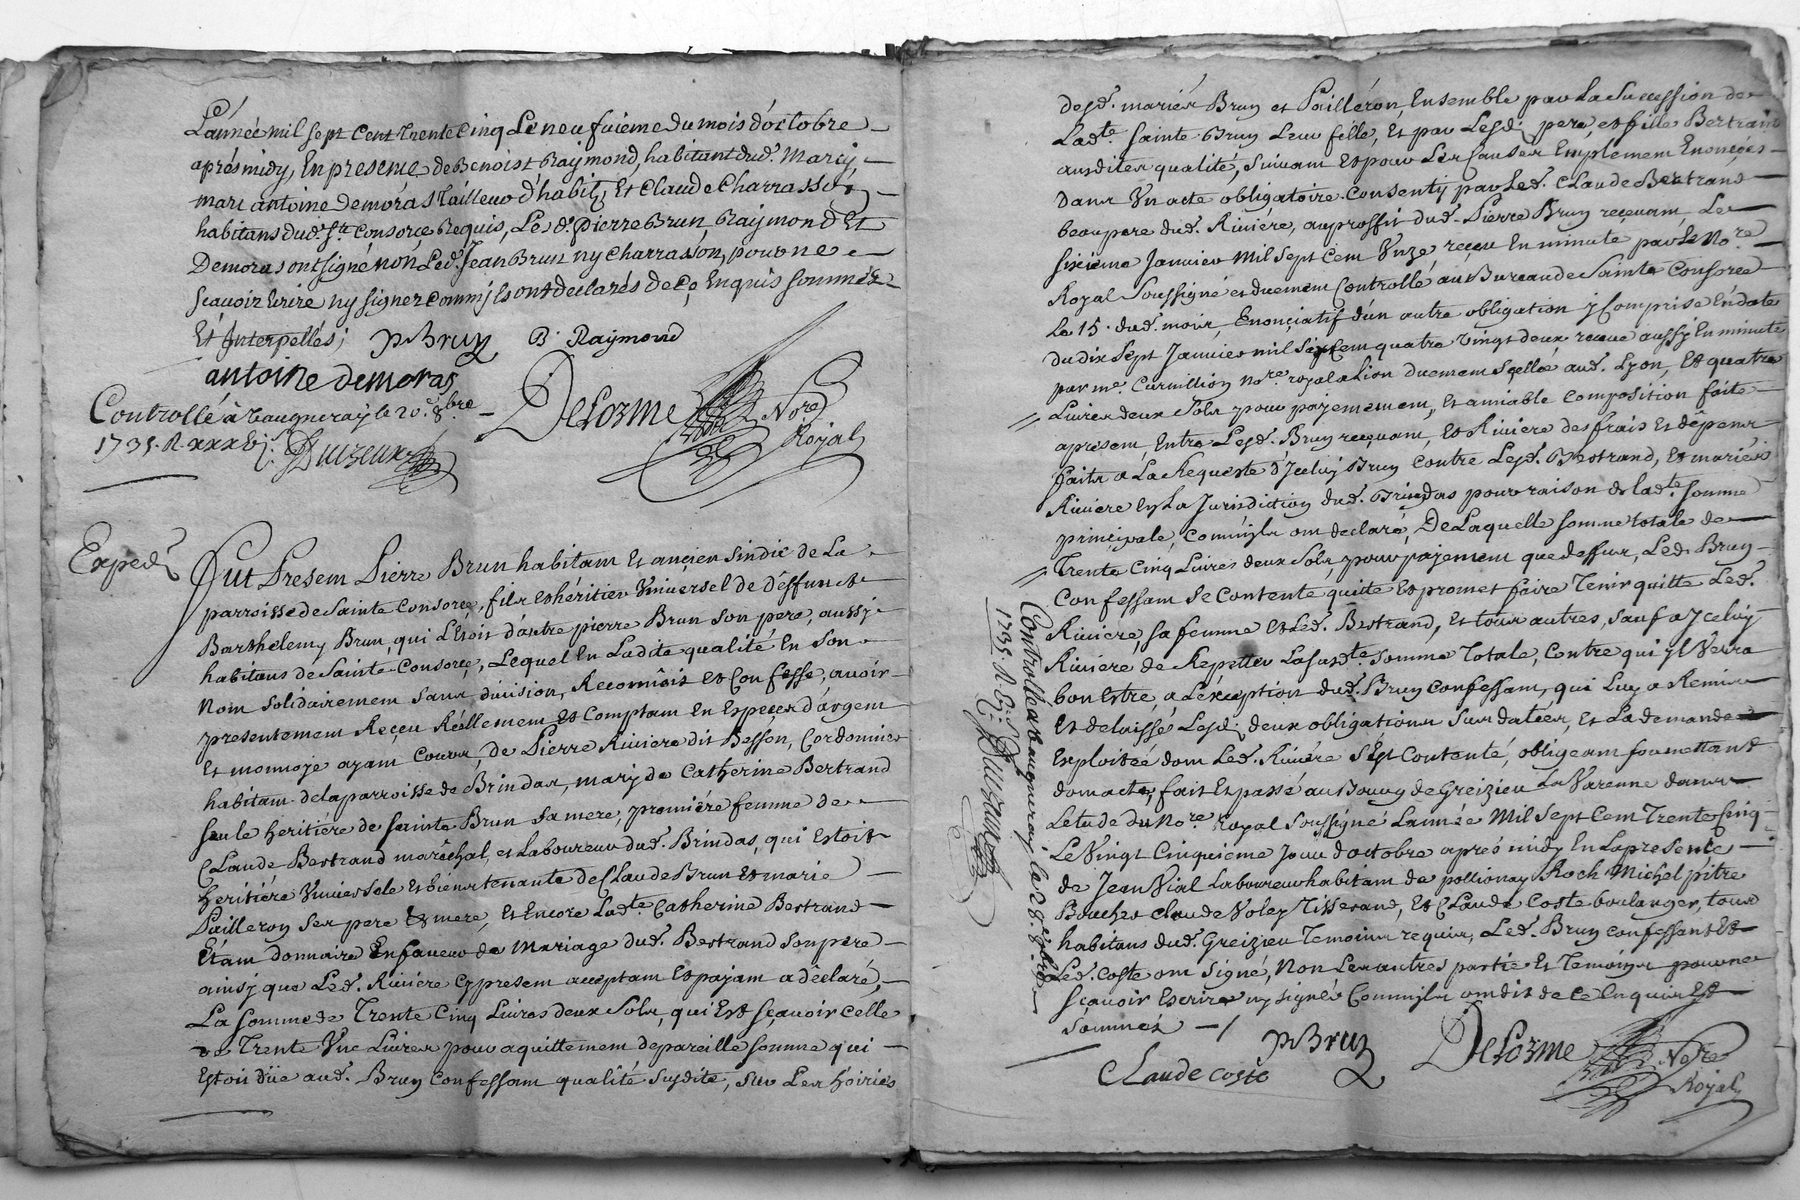 L'année mil sept Cent Trente Cinq Le neufuieme du mois d'octobre
aprés midy, En presence de Benoist Raÿmond, habitant dud. Marcÿ,
marc antoine Demoras Tailleur d'habit, Et Claude Charrasson
habitans dud. Ste Consorce Requis, Led. Pierre Brun, Raÿmond Et
Demoras ont signé non Led. Jean Brun ny Charrasson, pour ne
sçauoir Ecrire ny signer comm'jls ont declarés de ce Enquis sommés
Et Interpellés;
P Brun
B. Raymond
antoine demoras
Delorme Nore
Royal
Controllé à Vaugneraÿ le 20e 8bre
1735. R. xxx
Exped.
Fut Presem Pierre Brun habitam Et ancien sindic de La
parroisse de Sainte Consorce, fils Et héritier Vniuersel de Déffunct
Barthelemy Brun, qui L'Etoit d'autre pierre Brun son pere, aussÿ
habitans de Sainte Consorce, Lequel En Ladite qualité En son
Nom Solidairemem Sans diuision, Reconnoist et Confesse, auoir
presentemem Reçeu Réellemem Et Comptam En Especes d'argem
Et monnoye aÿam Cours, De Pierre Riuiere dit Besson, Cordonnier
habitam de la parroisse de Brindas, marÿ de Catherine Bertrand
seule heritiére de Sainte Brun Sa mere, premiére femme de
Claude Bertrand maréchal, et Laboureur dud. Brindas, qui Estoit
heritiére Vniuerselle Et bien tenante de Claude Brun Et marie
Pailleron ses pere Et mere, Et Encore Ladte Catherine Bertrand
Etam donnaire En faueur de Mariage dud. Bertrand son pere
ainsÿ que Led. Riuiére Cy presem acceptam Et paÿam a déclaré,
La somme de Trente Cinq Liures deux Sols, qui Est sçauoir Celle
de Trente Vne Liures pour aquittemem de pareille somme qui
Estoit düe aud. Brun Confessam qualité Susdite, Sur Les hoiries
desd. mariés Brun et Pailléron, Ensemble par La Succession de
Ladte Sainte Brun Leur fille, Et par Lesd. pere, et fille Bertrand
ausdites qualité, Suiuam Et pour Les Causes Emplemem Enoncées
Dans Vn acte obligatoire Consentÿ par Led. Claude Bertrand
beau pere dud. Riuiére, au proffit dud. Pierre Brun reçeuam, Le
sixieme Januier Mil Sept Cem Vnze, reçeu En minute par Le Nore
Royal Soussigné et duemem Controllé au Bureau de Sainte Consorce
Le 15. dud. mois, Enonciatif d'un autre obligation ÿ Comprise En date
du dix Sept Januier mil Six Cem quatre Vingt deux reçeue aussÿ En minute
par me. Nore. royal a Lion duemem Sçellée aud. Lyon, Et quatre
Liures deux Sols pour paÿemem, Et amiable Composition faite
apresem, Entre Lesd. Brun reçeuam, Et Riuiére des frais Et dépens
faits a La Requeste d'Jceluÿ Brun Contre Lesd. Bertrand, Et mariés
Riuiére En La Jurisdiction dud. Brindas pour raison de ladte somme
principale, Comm'jls om declaré, De Laquelle somme totale de
Trente Cinq Liures deux Sols, pour paÿement que dessus, Led. Brun
Confessam Se Contente quitte Et promet faire Tenir quitte Led.
Riuiére, sa femme Et Led. Bertrand, Et tous autres, Sauf a Jceluÿ
Riuiére de Repetter La susdte Somme Totale, Contre qui jl Verra
bon Estre, a L'éxception dud. Brun Confessam, qui Luy a Remis
Et delaissé Lesd. deux obligations Sus datées, Et La demande
Exploitée dom Led. Riuiére s'Est Contenté, obligeam soumettant
dom acte, fait Et passé au Bourg de Greizieu La Varenne dans
Letude du Nore. Royal Soussigné Lannée Mil Sept Cem Trente Cinq
Le Vingt Cinquieme Jour d'octobre aprés midy En La presence
de Jean Vial Laboureur habitam de pollionay Roch Michel pitre
Boucher Claude Voley Tisserand, Et Claude Coste boulanger, tous
habitans dud. Greizieu Temoins requis, Led. Brun Confessant Et
Led. Coste om Signé, Non Les autres partie Et Temoins pour ne
sçauoir Escrire ny signer Comm'jls om dit de Ce Enquis Et
sommés
P Brun
Claude coste
Delorme Nore
Royal
Controllé a Vaugneray le 28e 8bre
1735. R